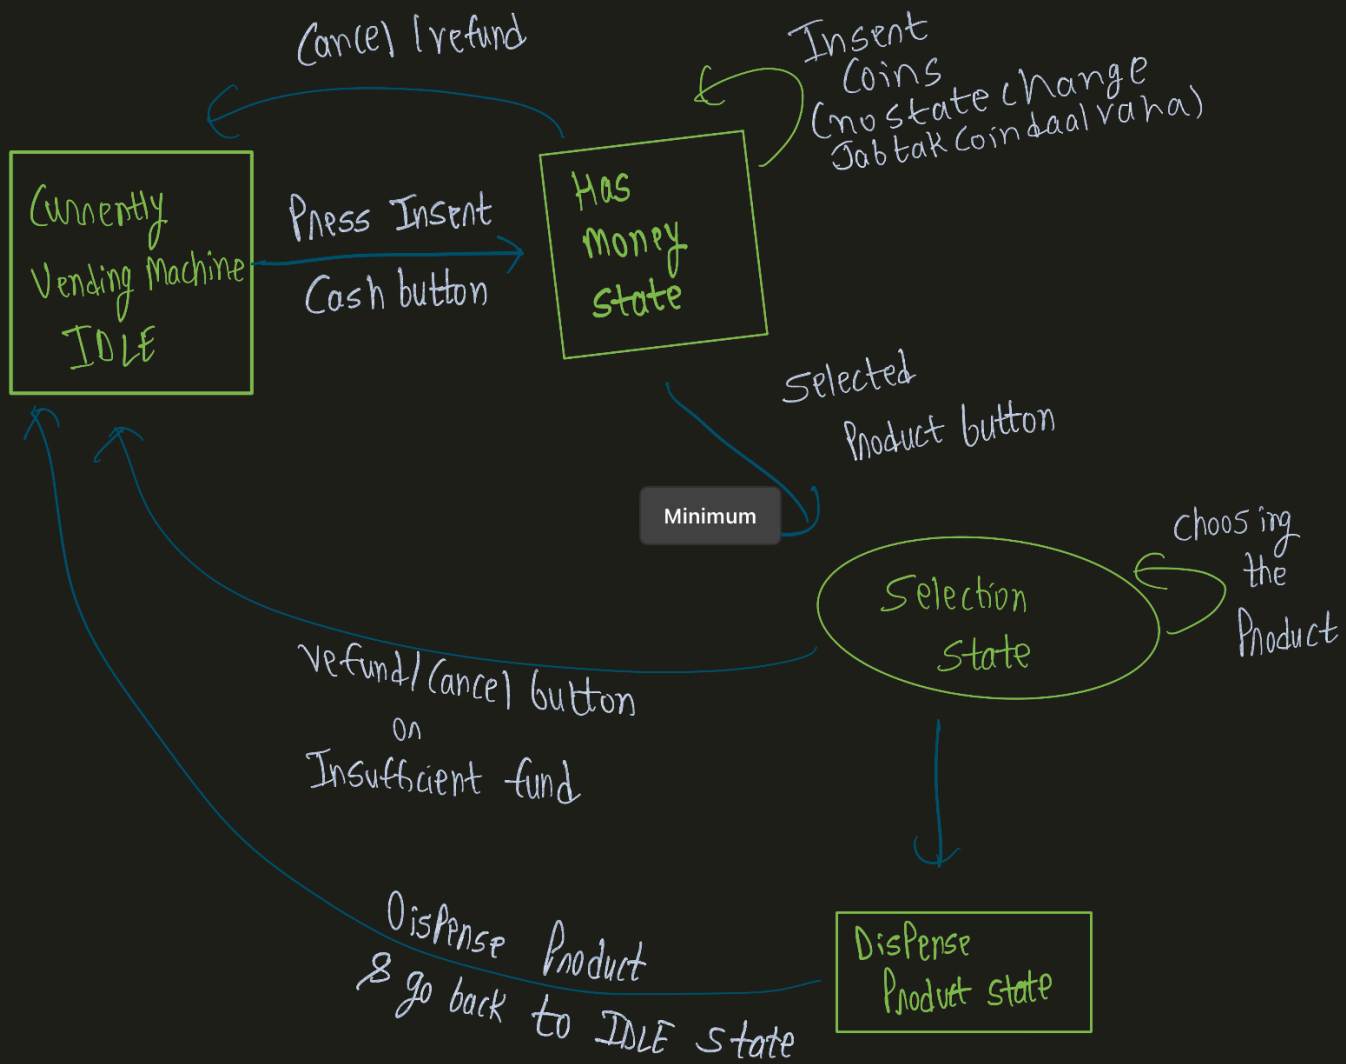 Cancel / refund
Insert
Coins
(no state change
Jab tak Coin daal raha)
Currently
Vending Machine
IDLE
Press Insert
Cash button
Has
Money
State
Selected
Product button
Minimum
Selection
State
Choosing
the
Product
refund/Cancel button
or
Insufficient fund
Dispense Product
& go back to IDLE state
Dispense
Product state